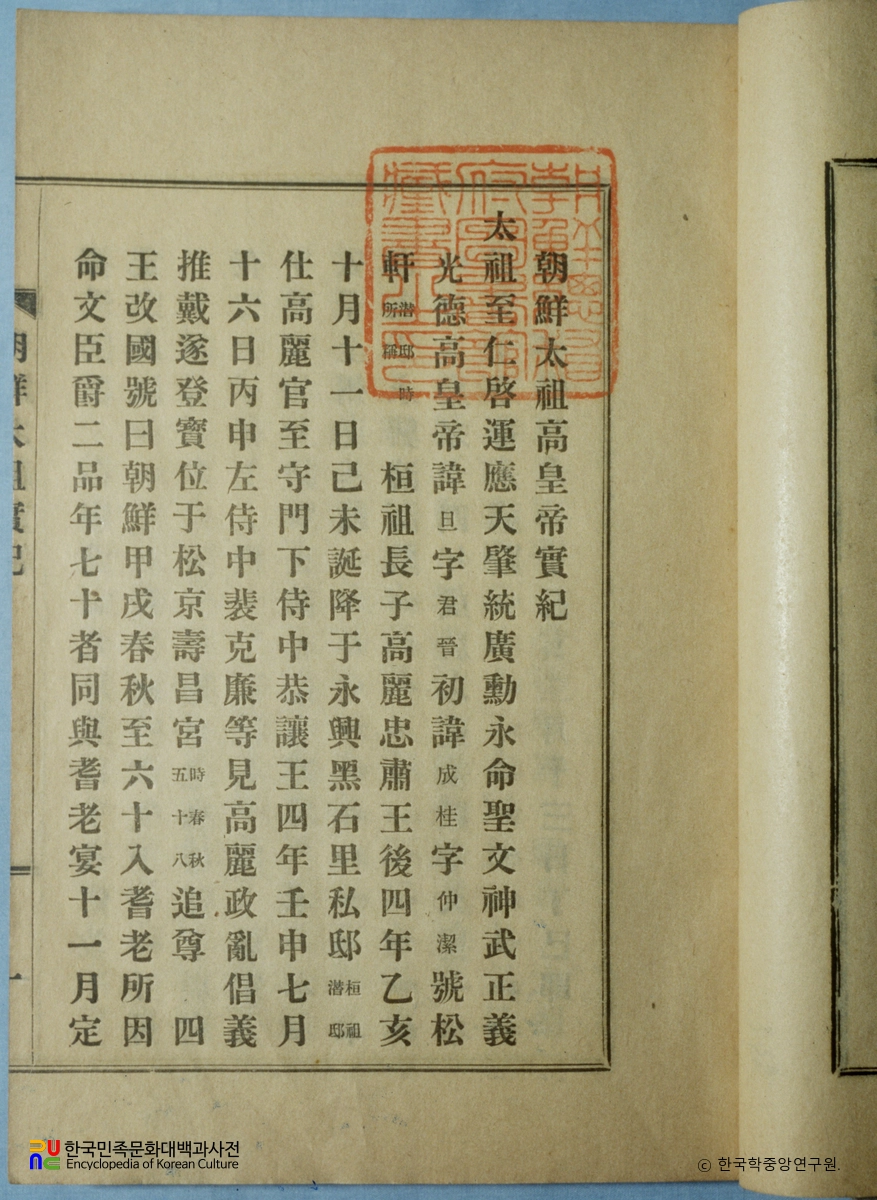 朝鮮太祖高皇帝實紀
太祖至仁啓運應天肇統廣勳永命聖文神武正義
光德高皇帝諱旦字君晉初諱成桂字仲潔號松
軒潜邸時所稱 桓祖長子高麗忠肅王後四年乙亥
十月十一日己未誕降于永興黑石里私邸桓祖潛邸
仕高麗官至守門下侍中恭讓王四年壬申七月
十六日丙申左侍中裴克廉等見高麗政亂倡義
推戴遂登寶位于松京壽昌宮時春秋五十八追尊 四
王改國號曰朝鮮甲戌春秋至六十入耆老所因
命文臣爵二品年七十者同與耆老宴十一月定
朝鮮太祖實紀
一
朝鮮總督府圖書館藏書之印
한국민족문화대백과사전
Encyclopedia of Korean Culture
ⓒ 한국학중앙연구원.